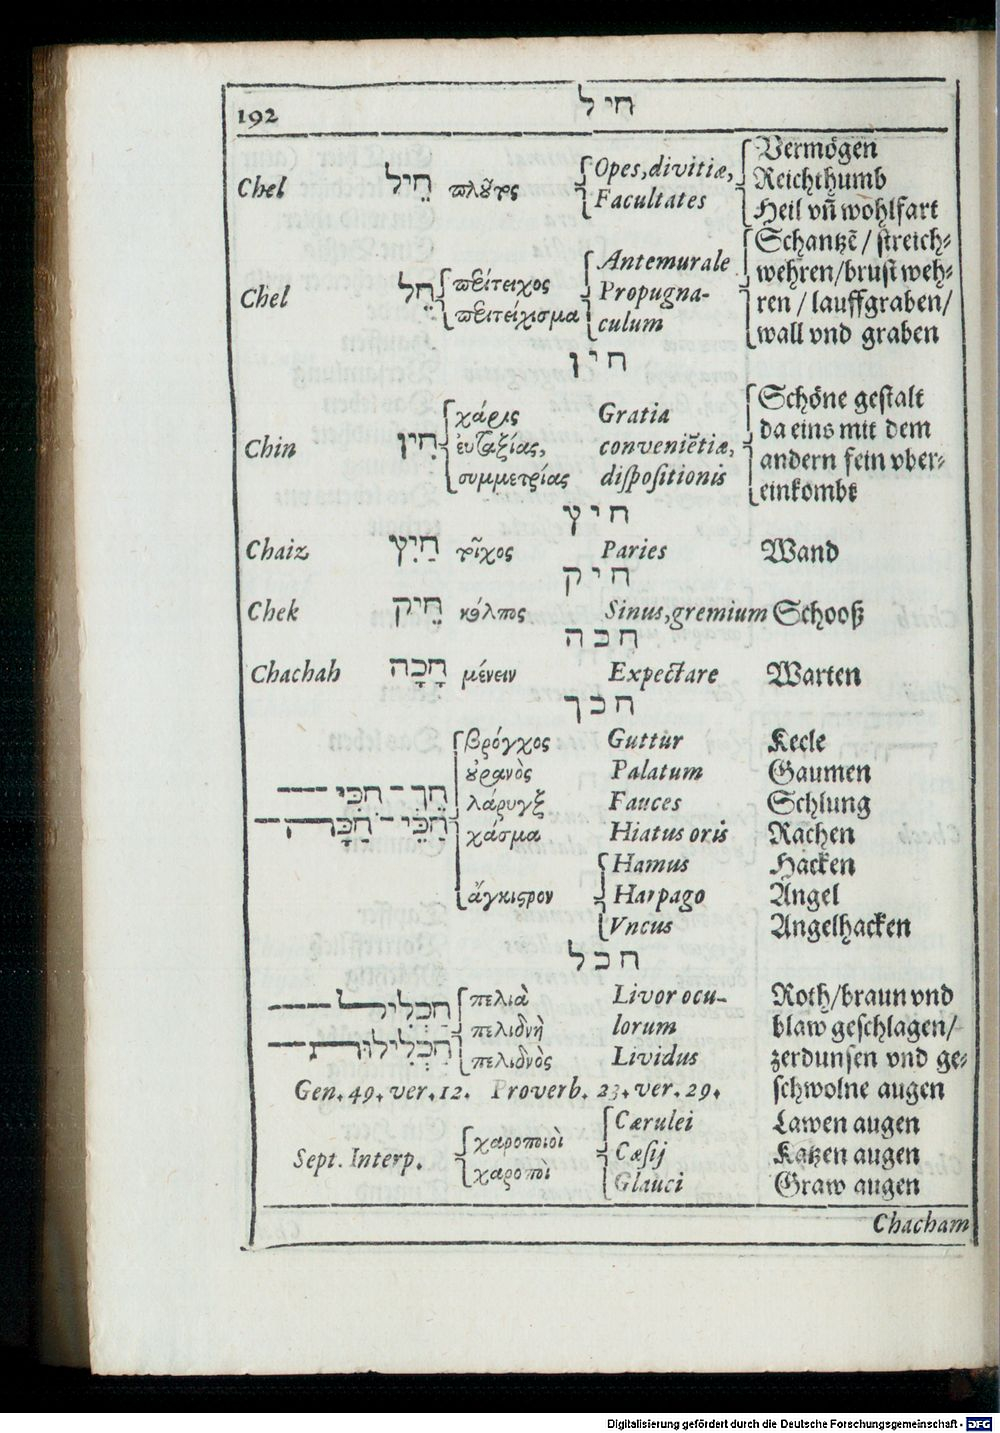 192
חיל
Chel חֵיל πλοῦτος Opes, divitiæ, Facultates Vermögen
Reichthumb
Heil vñ wohlfart
Chel חֵל περίτειχος Antemurale Schantzẽ / streich-
περιτείχισμα Propugna- wehren/brust weh-
culum ren / lauffgraben/
wall vnd graben
חין
Chin חִין χάρις Gratia Schöne gestalt
εὐταξίας, conveniẽtiæ, da eins mit dem
συμμετρίας dispositionis andern fein vber-
einkombt
חיץ
Chaiz חַיִץ τοῖχος Paries Wand
חיק
Chek חֵיק κόλπος Sinus, gremium Schooß
חכה
Chachah חָכָה μένειν Expectare Warten
חכך
βρόγχος Guttur Keele
οὐρανὸς Palatum Gaumen
חֵךְ - חִכִּי λάρυγξ Fauces Schlung
חַכֵּי - חַכָּה χάσμα Hiatus oris Rachen
Hamus Hacken
ἄγκιστρον Harpago Angel
Vncus Angelhacken
חכל
חַכְלִיל πελιὰ Livor ocu- Roth/braun vnd
πελιδνὴ lorum blaw geschlagen/
חַכְלִילוּת πελιδνὸς Lividus zerdunsen vnd ge-
Gen. 49. ver. 12. Proverb. 23. ver. 29. schwolne augen
Cærulei Lawen augen
Sept. Interp. χαροποιοὶ Cæsij Katzen augen
χαροποὶ Glauci Graw augen
Chacham
Digitalisierung gefördert durch die Deutsche Forschungsgemeinschaft - DFG